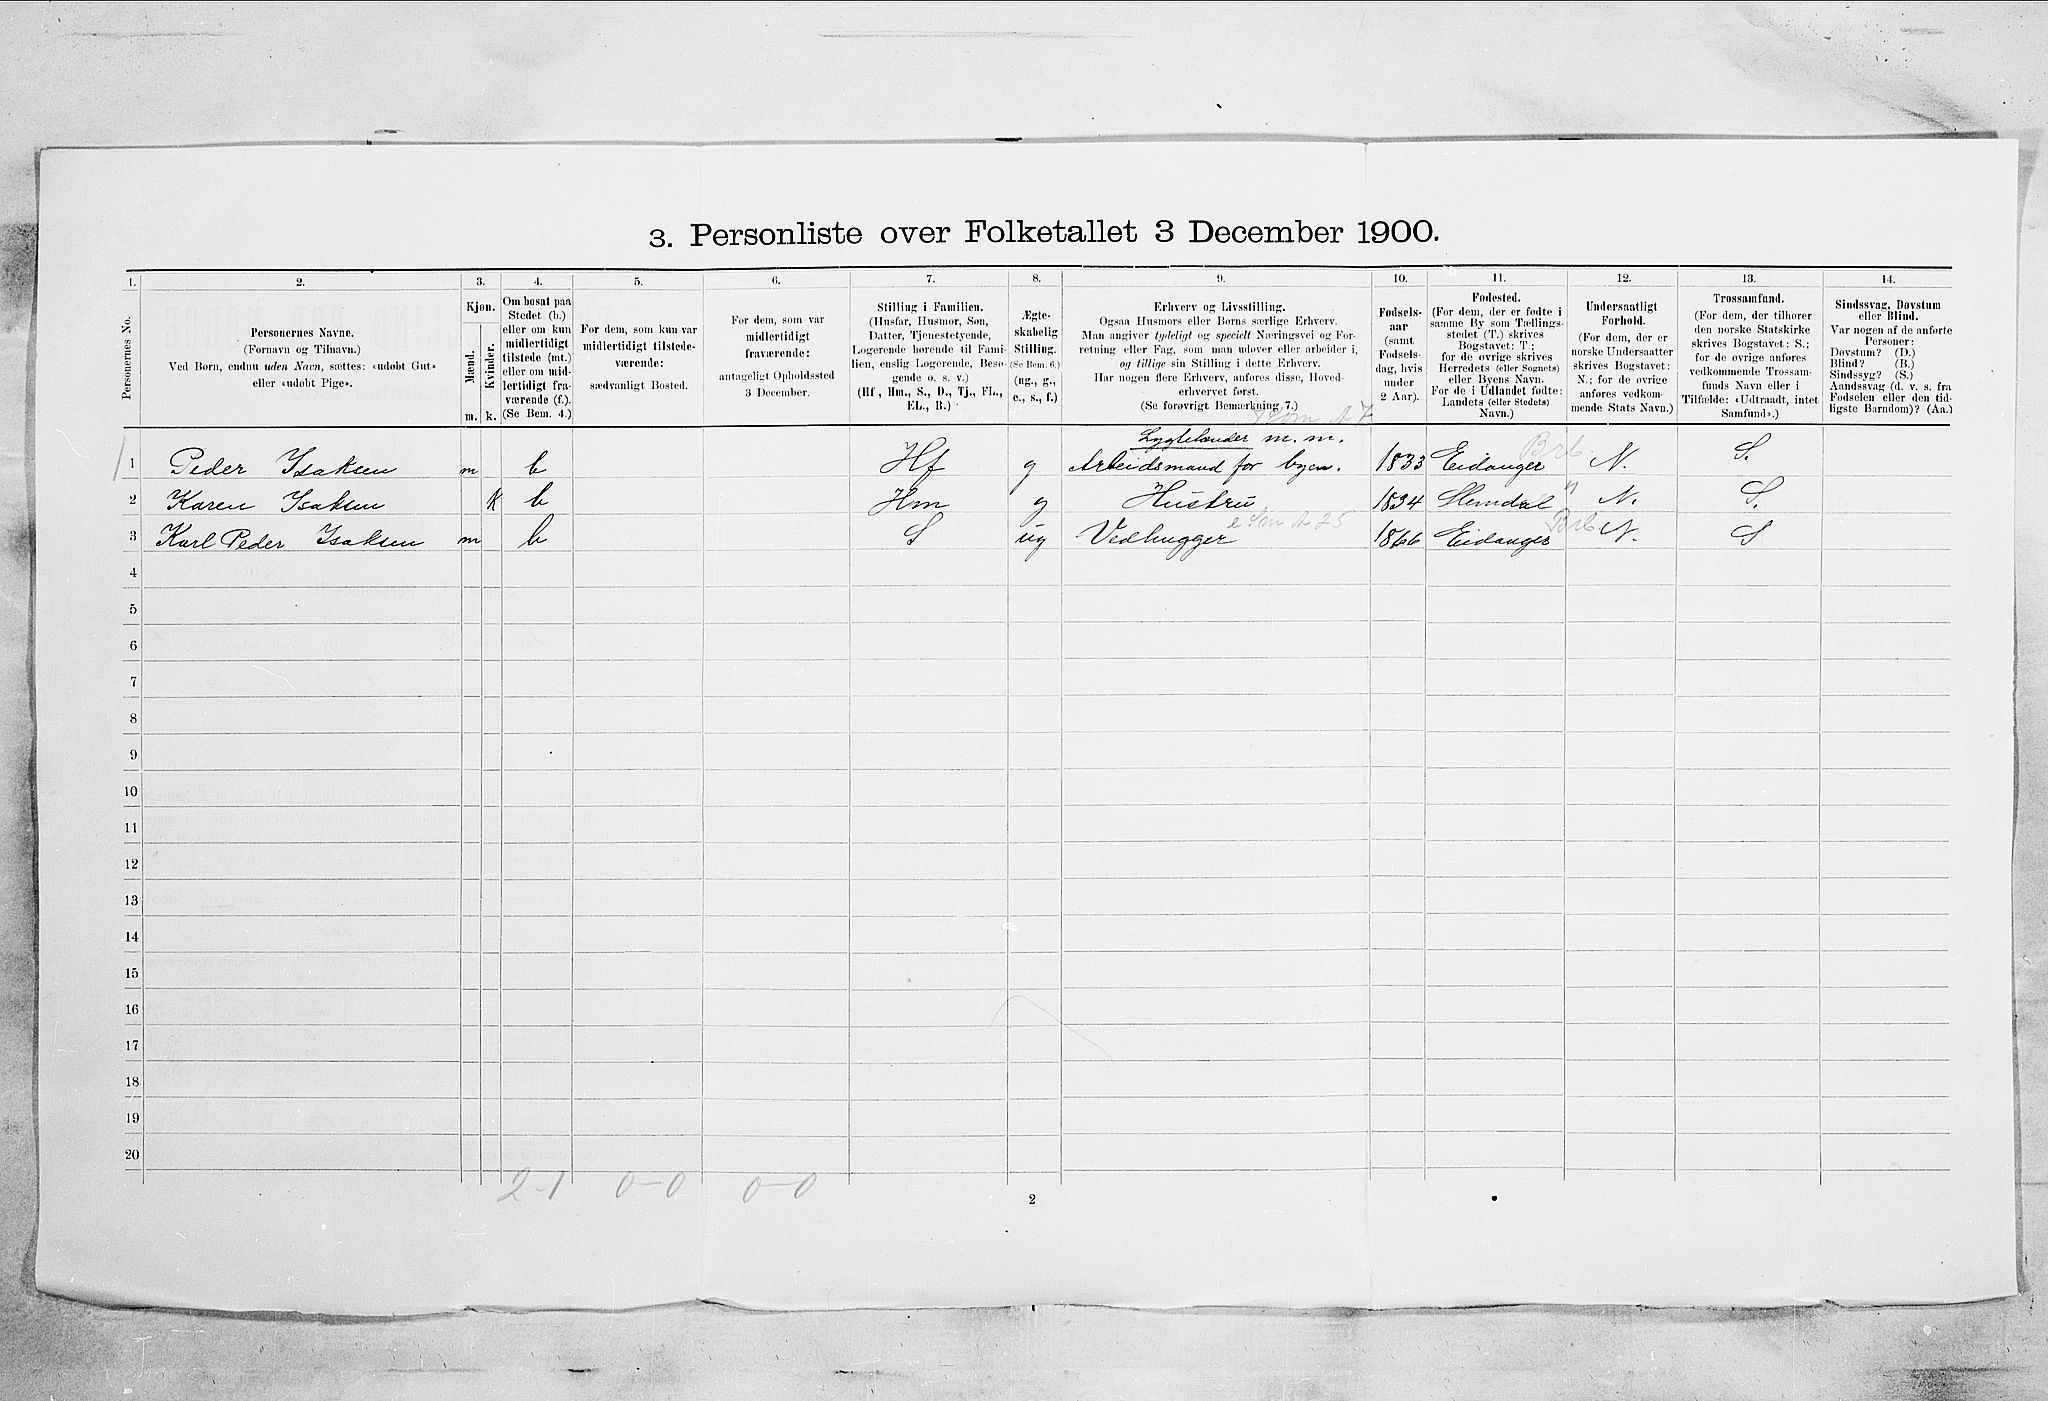 3. Personliste over Folketallet 3 December 1900.
1. 2. 3. 4. 5. 6. 7. 8. 9. 10. 11. 12. 13. 14.
Personernes No.
Personernes Navne.
(Fornavn og Tilnavn.)
Ved Børn, endnu uden Navn, sættes: «udøbt Gut»
eller «udøbt Pige».
Kjøn.
Mænd.
Kvinder.
m. k.
Om bosat paa
Stedet (b.)
eller om kun
midlertidigt
tilstede (mt.)
eller om mid-
lertidigt fra-
værende (f.).
(Se Bem. 4.)
For dem, som kun var
midlertidigt tilstede-
værende:
sædvanligt Bosted.
For dem, som var
midlertidigt
fraværende:
antageligt Opholdssted
3 December.
Stilling i Familien.
(Husfar, Husmor, Søn,
Datter, Tjenestetyende,
Logerende hørende til Fami-
lien, enslig Logerende, Besø-
gende o. s. v.)
(Hf, Hm., S., D., Tj., FL.,
EL., B.)
Ægte-
skabelig
Stilling.
(Se Bem. 6.)
(ug., g.,
e., s., f.)
Erhverv og Livsstilling.
Ogsaa Husmors eller Børns særlige Erhverv.
Man angiver tydeligt og specielt Næringsvei og For-
retning eller Fag, som man udøver eller arbeider i,
og tillige sin Stilling i dette Erhverv.
Har nogen flere Erhverv, anføres disse, Hoved-
erhvervet først.
(Se forøvrigt Bemærkning 7.)
Fødsels-
aar
(samt
Fødsels-
dag, hvis
under
2 Aar).
Fødested.
(For dem, der er fødte i
samme By som Tællings-
stedet (T.) skrives
Bogstavet: T.;
for de øvrige skrives
Herredets (eller Sognets)
eller Byens Navn.
For de i Udlandet fødte:
Landets (eller Stedets)
Navn.)
Undersaatligt
Forhold.
(For dem, der er
norske Undersaatter
skrives Bogstavet:
N.; for de øvrige
anføres vedkom-
mende Stats Navn.)
Trossamfund.
(For dem, der tilhører
den norske Statskirke
skrives Bogstavet: S.;
for de øvrige anføres
vedkommende Trossam-
funds Navn eller i
Tilfælde: «Udtraadt, intet
Samfund».)
Sindssvag, Døvstum
eller Blind.
Var nogen af de anførte
Personer:
Døvstum? (D.)
Blind? (B.)
Sindssyg? (S.)
Aandssvag (d. v. s. fra
Fødselen eller den tid-
ligste Barndom)? (Aa.)
Lygtetænder m.m.
1 Peder Isaksen m b Hf g Arbeidsmand for byen. 1833 Eidanger Brb. N. S.
2 Karen Isaksen K b Hm g Hustru 1834 Slemdal " N. S.
3 Karl Peder Isaksen m b S ug Vedhugger 1866 Eidanger Brb N. S
4
5
6
7
8
9
10
11
12
13
14
15
16
17
18
19
20
2-1 0-0 0-0
2